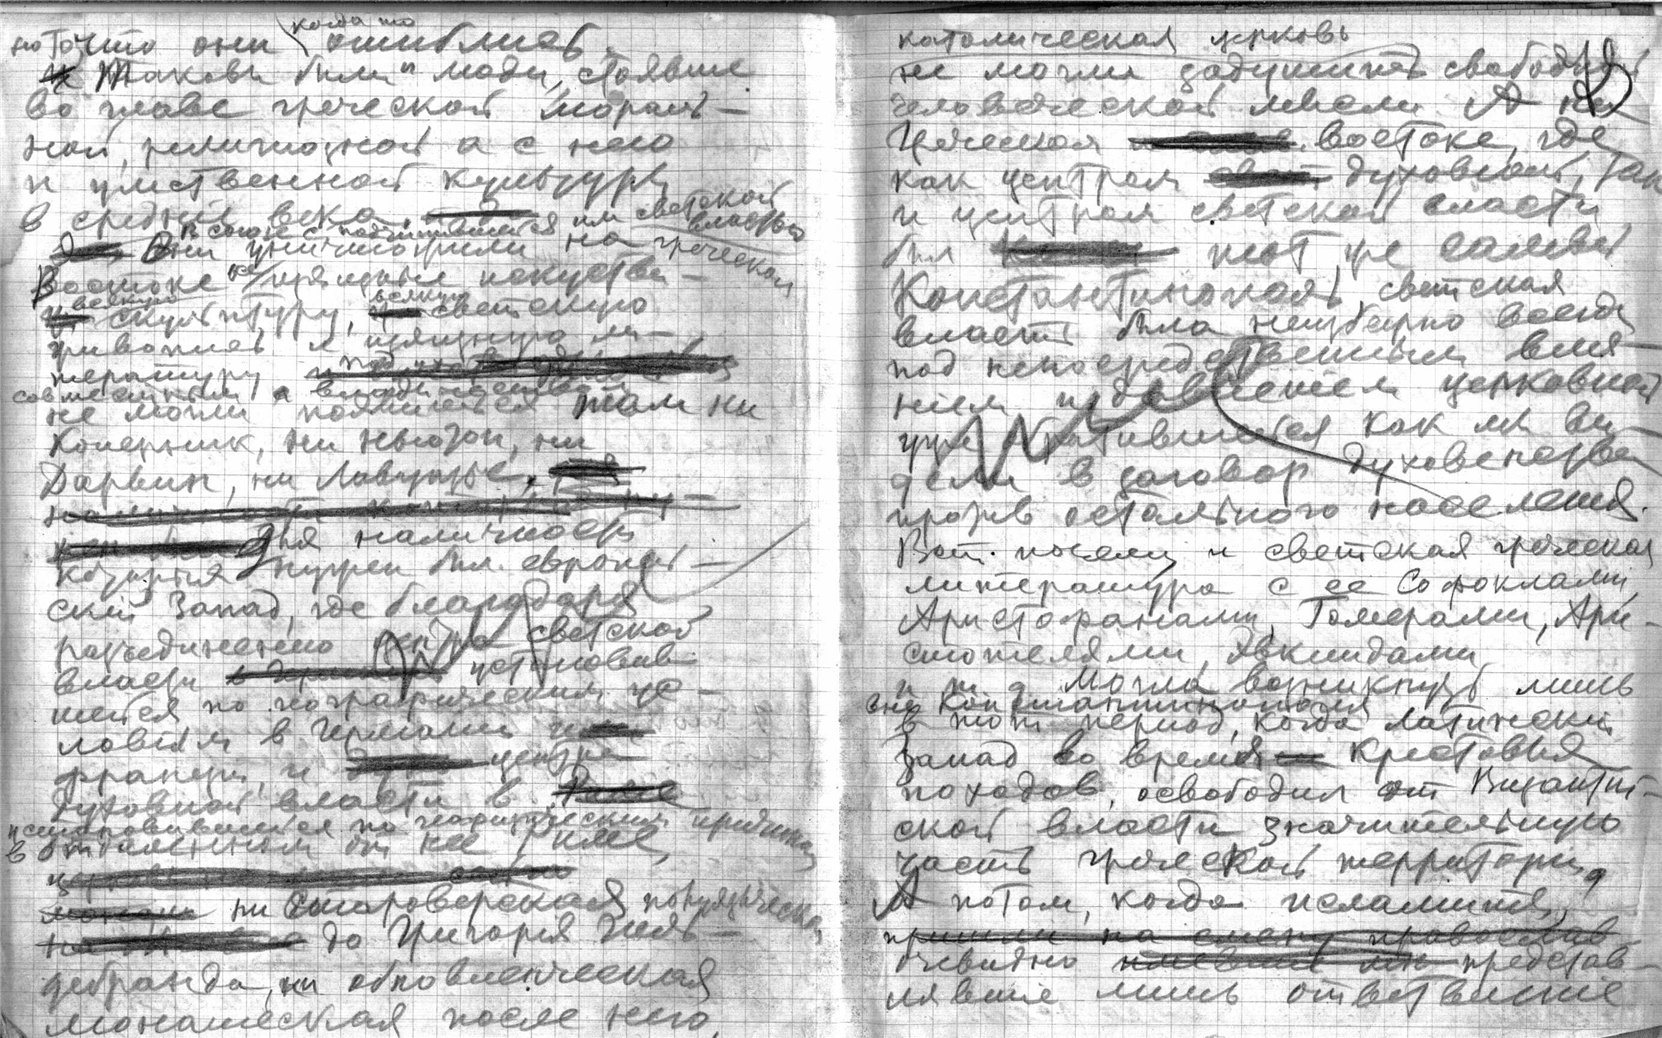 когда то
но то что они ошиблись.
Таковы были люди, стоявшие
во главе греческой мораль-
ной, религиозной а с нею
и умственной культуры
в средние века
в союзе с подчинившейся им светской
властью
Они уничтожили на греческом
Востоке изящные искусства
всякую скульптуру, всякую светскую
живопись и изящную ли-
тературу
совместным а
не могли появиться там ни
Коперник, ни Ньютон, ни
Дарвин, ни Лавуазье,
Для наличности
нужен был европей-
ский Запад, где благодаря
разъединению центра светской
власти установив-
шейся по географическим ус-
ловиям в Германии и
Франции, и центра
духовной власти в
установившейся по историческим причинам
в отдаленном от нее Риме,
ни староверская полуязыческая
до Григория Гиль-
дебранда, ни обновленческая
монашеская после него,
католическая церковь
не могли задушить свободной
человеческой мысли А на
Греческом Востоке, где
как центром духовной, так
и центром светской власти
был тот же самый
Константинополь, светская
власть была неизбежно всегда
под непосредственным влия-
нием и давлением церковной
превратившейся как мы ви-
дели в заговор духовенства
против остального населения.
Вот почему и светская греческая
литература с ее Софоклами,
Аристофанами, Гомерами, Ари-
стотелями, Эвклидами
и т д могла возникнуть лишь
вне Константинополя
в тот период, когда латинский
Запад во время Крестовых
походов, освободил от Византий-
ской власти значительную
часть греческой территории,
А потом, когда исламиты,
пришли на смену православ
очевидно представ-
лявшие лишь ответвление